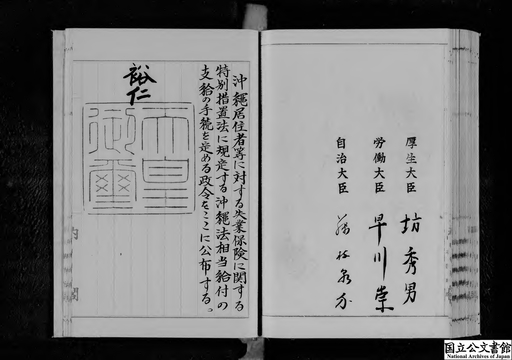 沖縄居住者等に対する失業保険に関する
特別措置法に規定する沖縄法相当給付の
支給の手続を定める政令をここに公布する。
裕仁
天皇
御璽
内閣
厚生大臣 坊秀男
労働大臣 早川崇
自治大臣 藤枝泉介
国立公文書館
National Archives of Japan